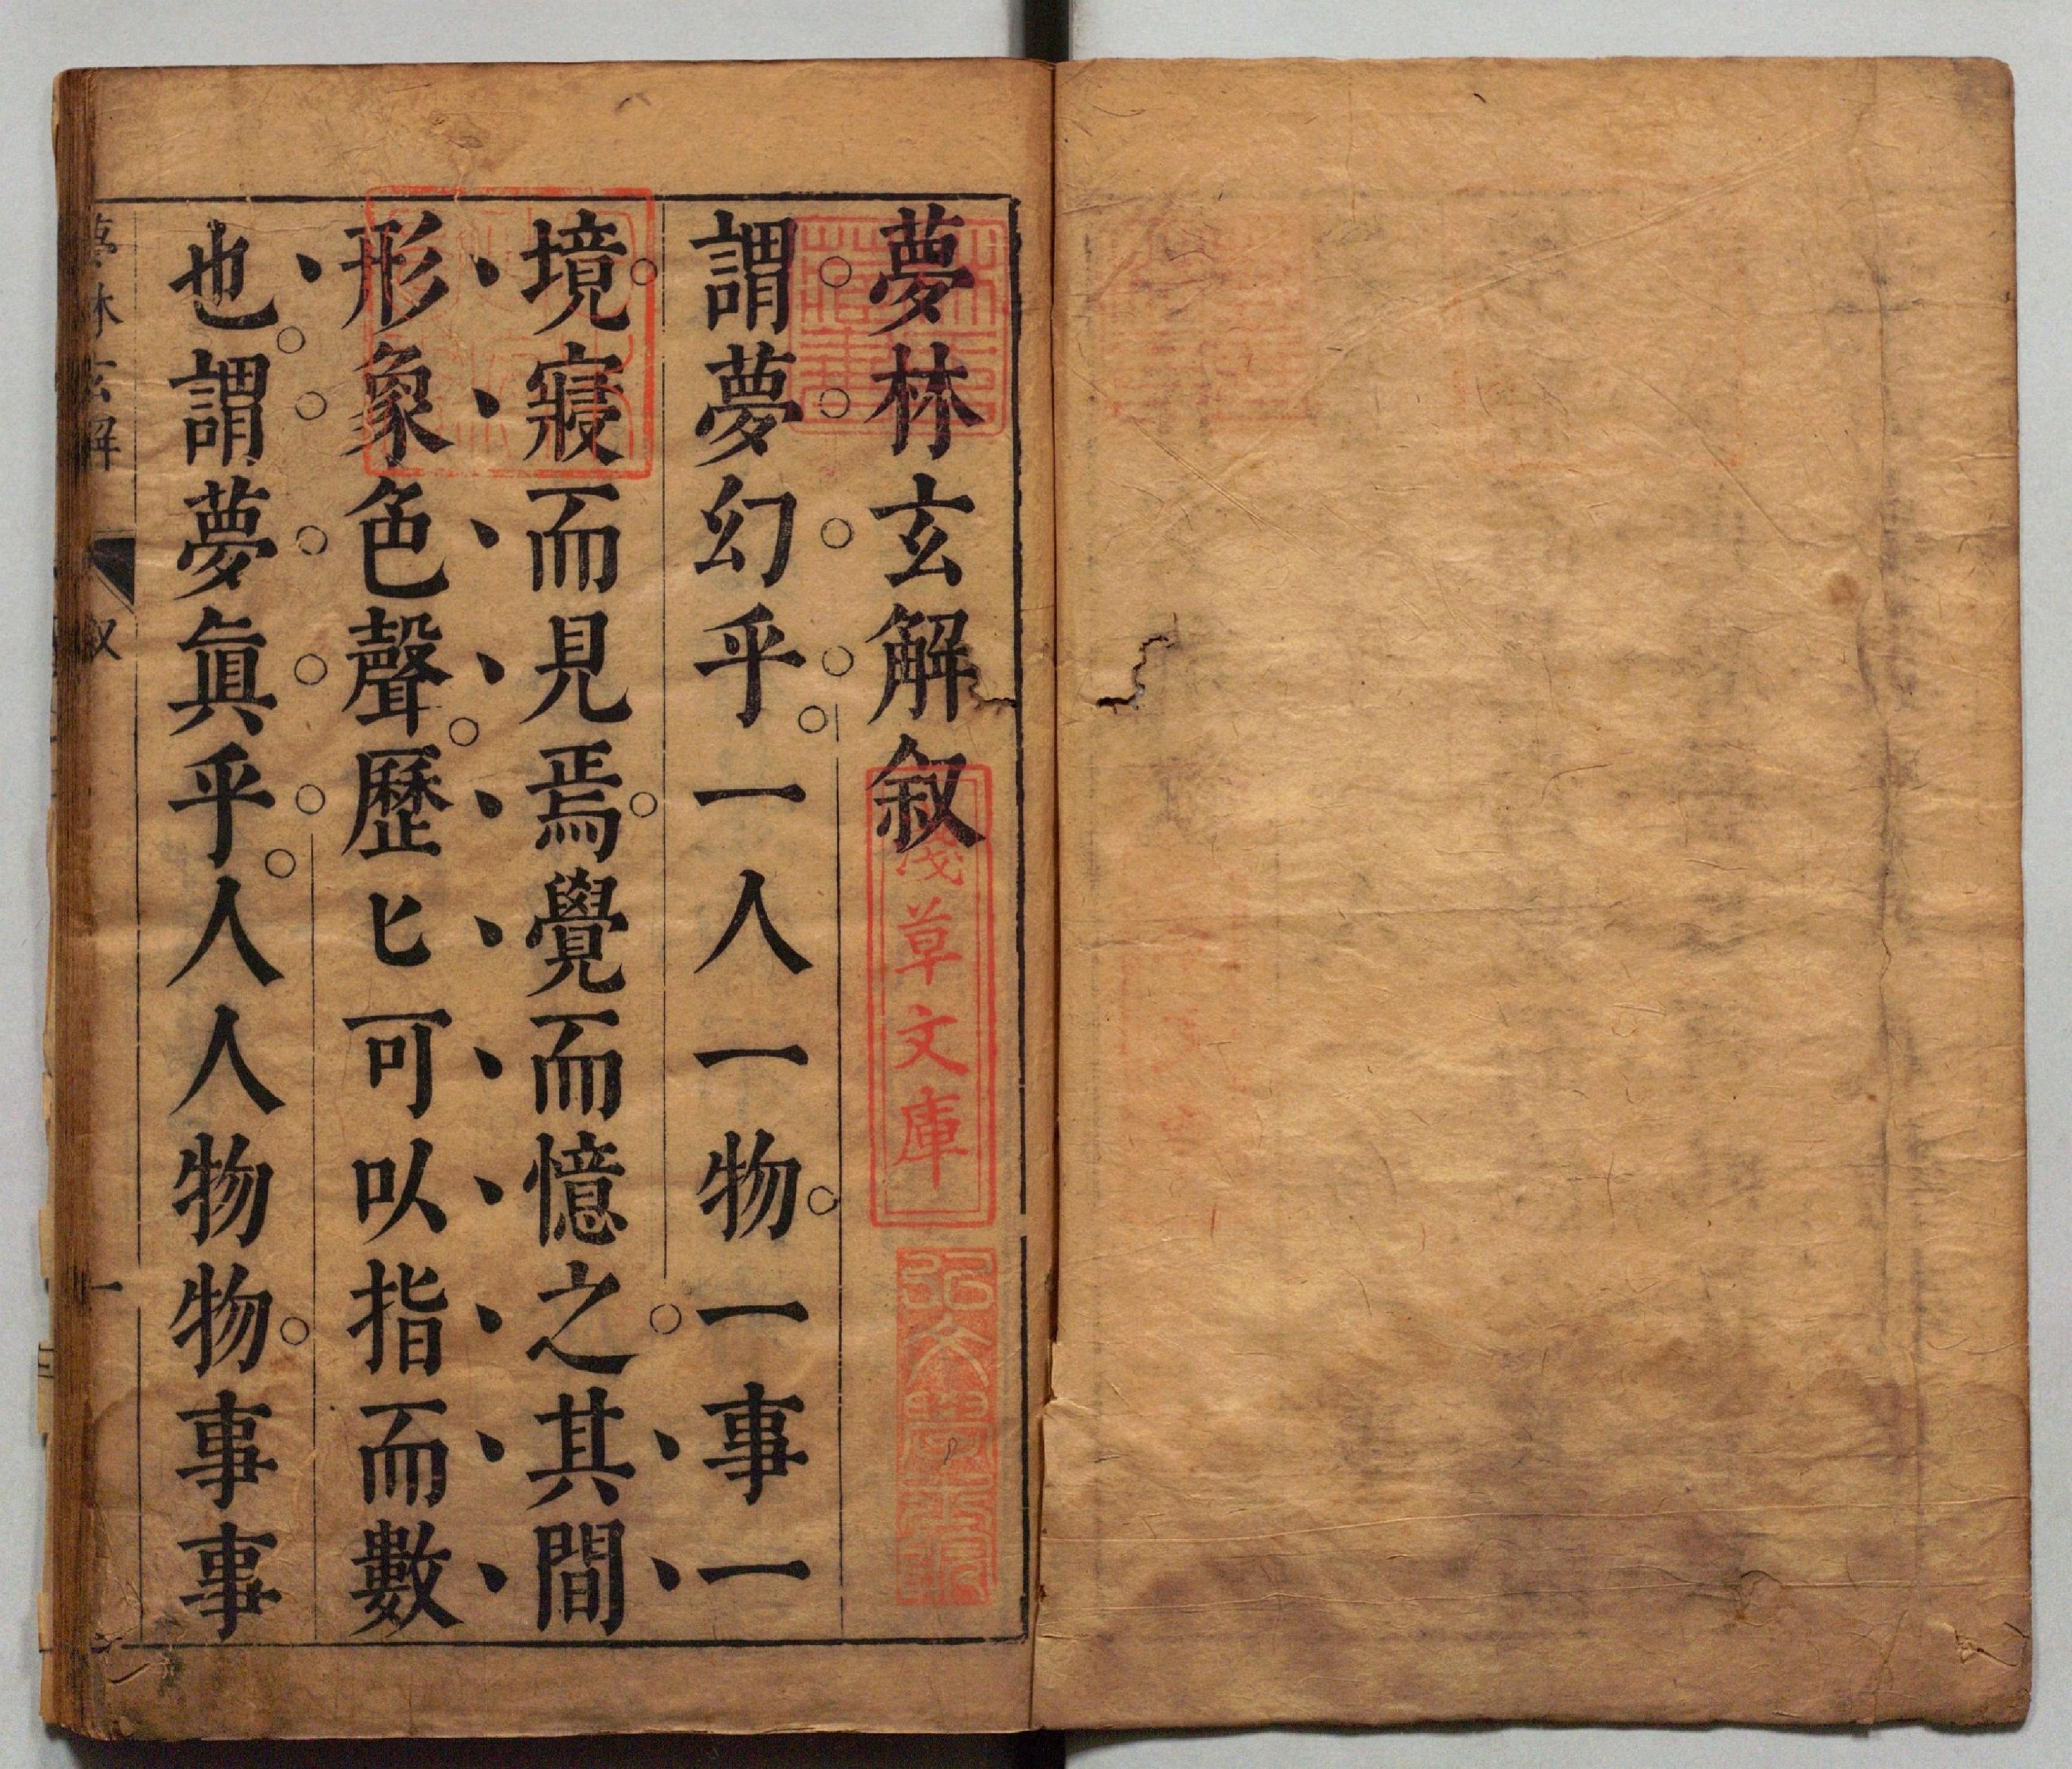 夢林玄解叙
謂夢幻乎一人一物一事一
境寢而見焉覺而憶之其間
形象色聲歷匕可以指而數
也謂夢眞乎人人物物事事
夢林玄解
叙
一
淺草文庫
弘文學士院
林氏藏書